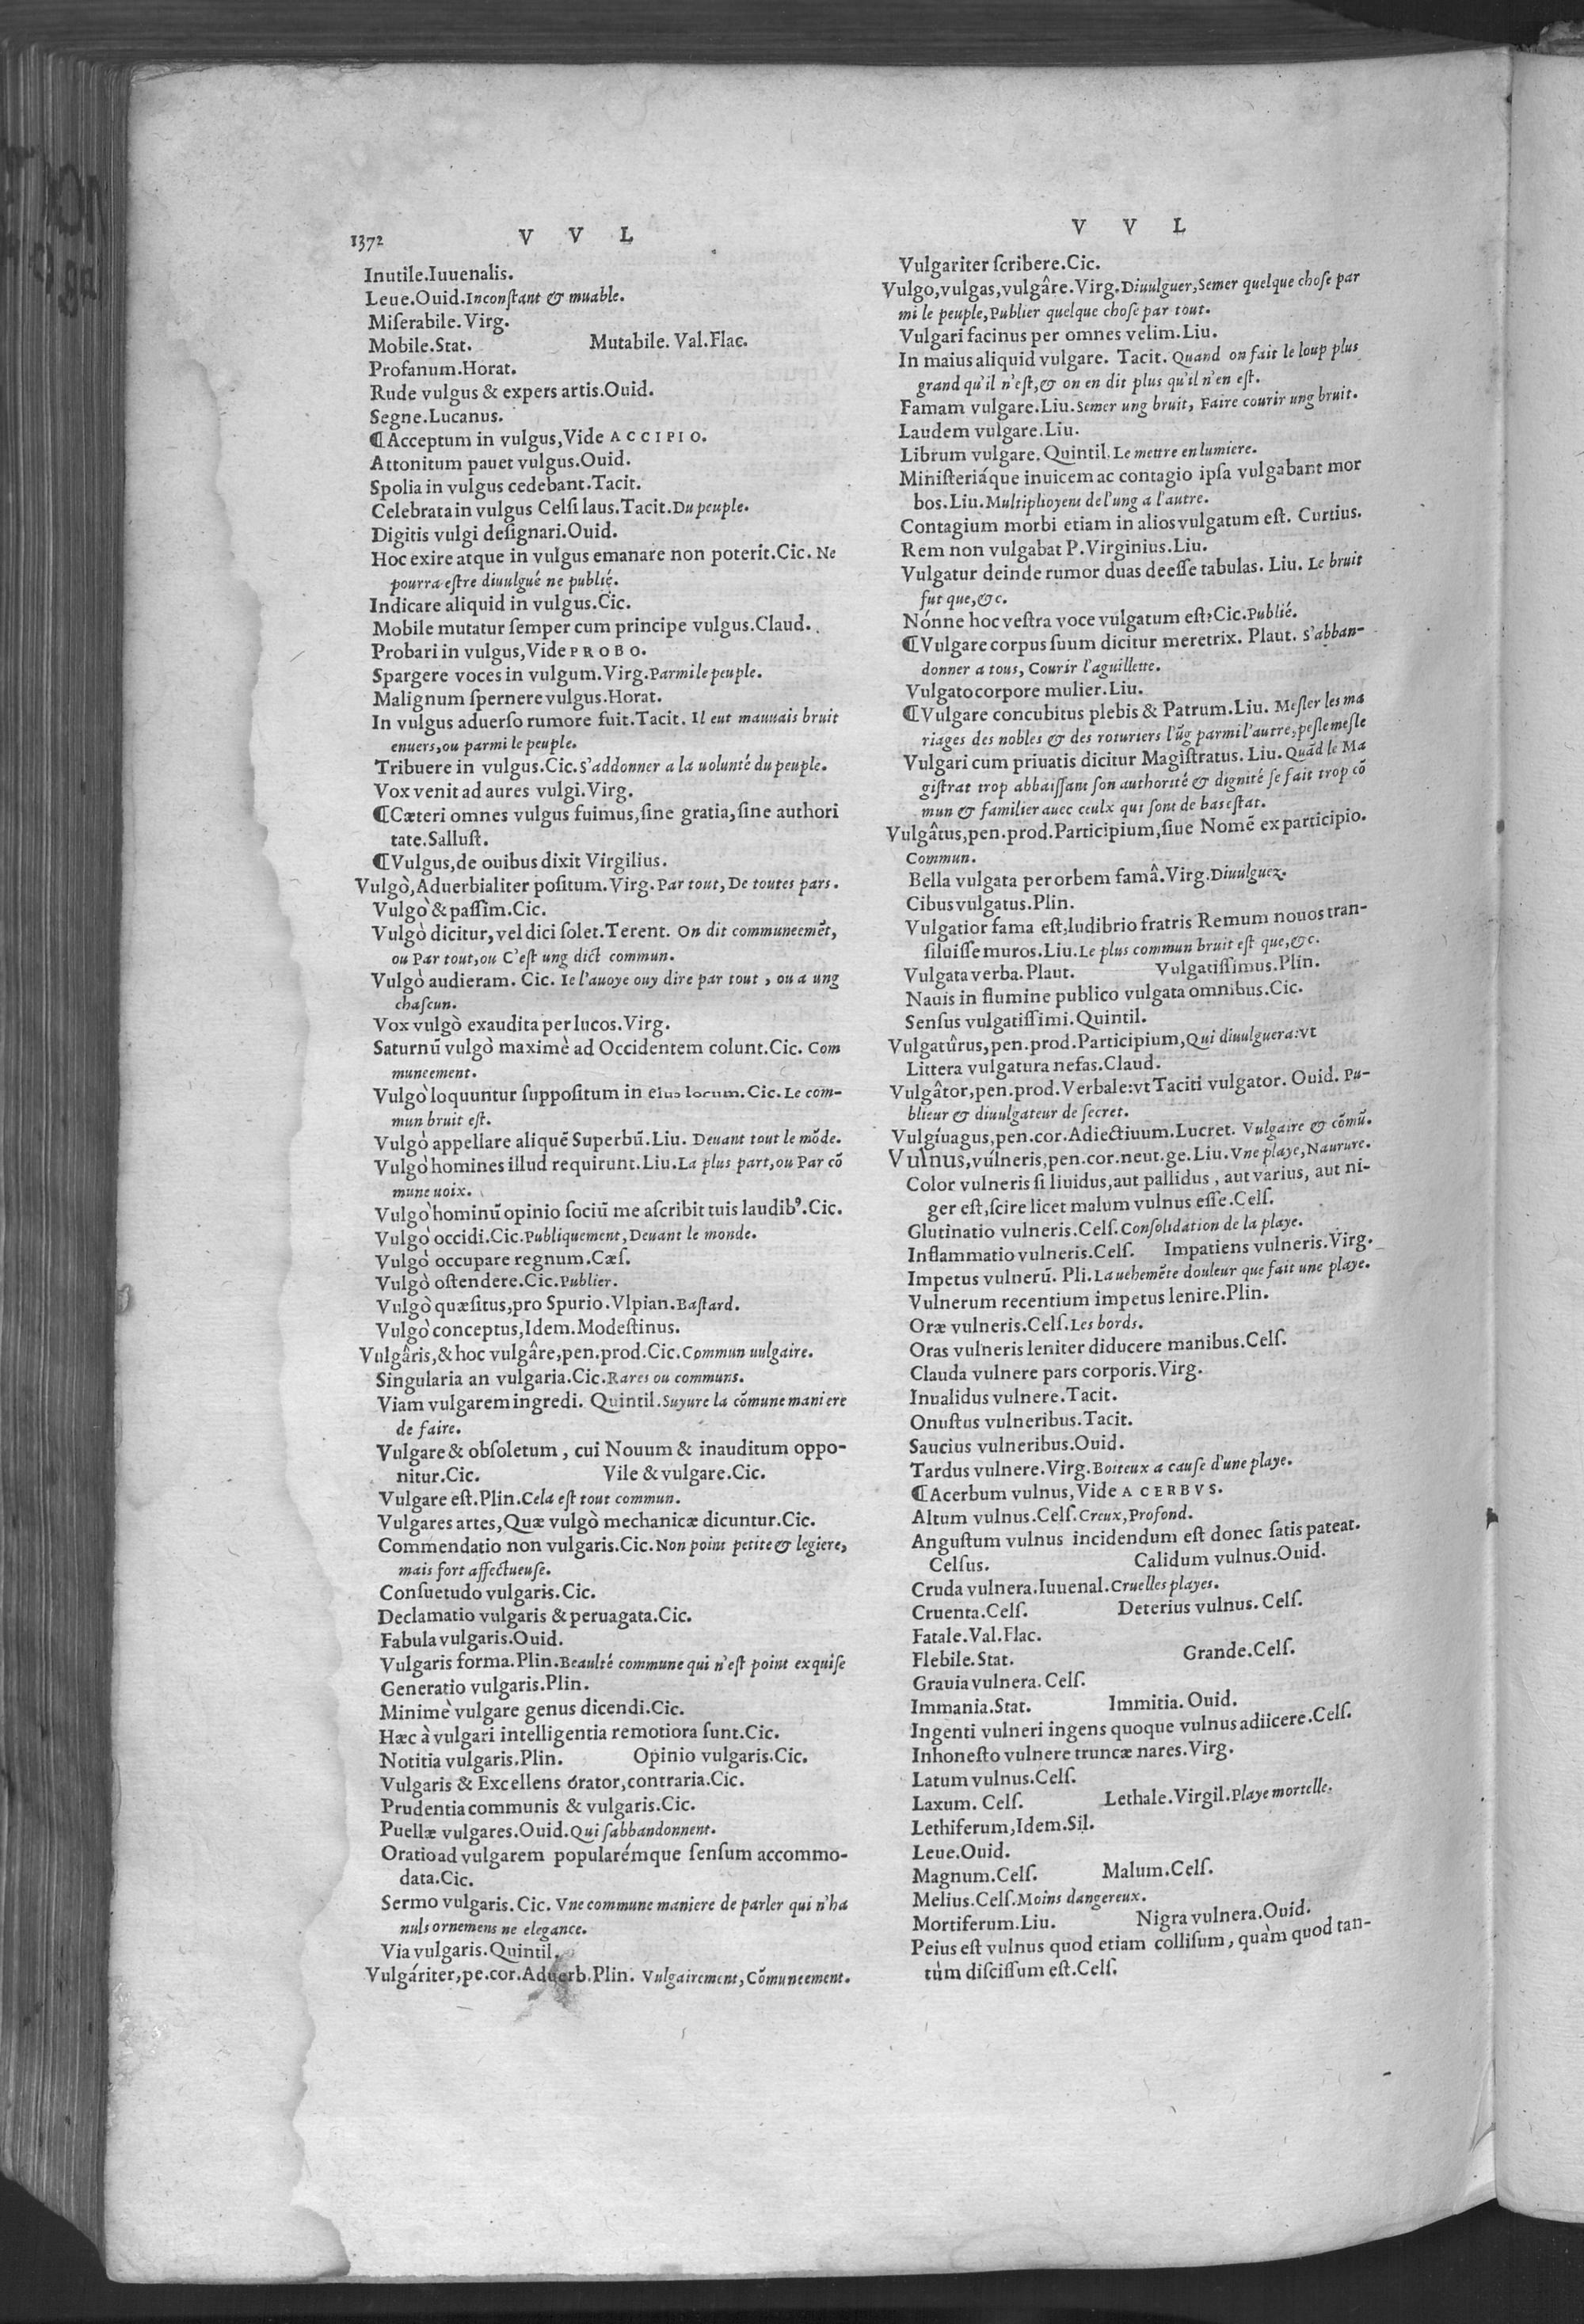 1372 V V L
Inutile.Iuuenalis.
Leue.Ouid.Inconſtant & muable.
Miſerabile.Virg.
Mobile.Stat. Mutabile. Val.Flac.
Profanum.Horat.
Rude vulgus & expers artis.Ouid.
Segne.Lucanus.
¶Acceptum in vulgus,Vide ACCIPIO.
Attonitum pauet vulgus.Ouid.
Spolia in vulgus cedebant.Tacit.
Celebrata in vulgus Celſi laus.Tacit.Du peuple.
Digitis vulgi deſignari.Ouid.
Hoc exire atque in vulgus emanare non poterit.Cic. Ne
pourra eſtre diuulgué ne publié.
Indicare aliquid in vulgus.Cic.
Mobile mutatur ſemper cum principe vulgus.Claud.
Probari in vulgus,Vide PROBO.
Spargere voces in vulgum.Virg.Parmi le peuple.
Malignum ſpernere vulgus.Horat.
In vulgus aduerſo rumore fuit.Tacit. Il eut mauuais bruit
enuers,ou parmi le peuple.
Tribuere in vulgus.Cic.S'addonner a la uolunté du peuple.
Vox venit ad aures vulgi.Virg.
¶Cæteri omnes vulgus fuimus,ſine gratia,ſine authori
tate.Salluſt.
¶Vulgus,de ouibus dixit Virgilius.
Vulgò,Aduerbialiter poſitum.Virg.Par tout,De toutes pars.
Vulgò & paſſim.Cic.
Vulgò dicitur,vel dici ſolet.Terent. On dit communeemẽt,
ou Par tout,ou C'eſt ung dict commun.
Vulgò audieram. Cic. Ie l'auoye ouy dire par tout , ou a ung
chaſcun.
Vox vulgò exaudita per lucos.Virg.
Saturnũ vulgò maximè ad Occidentem colunt.Cic. Com
muneement.
Vulgò loquuntur ſuppoſitum in eius locum.Cic.Le com-
mun bruit eſt.
Vulgò appellare aliquẽ Superbũ.Liu. Deuant tout le mõde.
Vulgò homines illud requirunt.Liu.La plus part,ou Par cõ
mune uoix.
Vulgò hominũ opinio ſociũ me aſcribit tuis laudibꝰ.Cic.
Vulgò occidi.Cic.Publiquement,Deuant le monde.
Vulgò occupare regnum.Cæſ.
Vulgò oſtendere.Cic.Publier.
Vulgò quæſitus,pro Spurio.Vlpian.Baſtard.
Vulgò conceptus,Idem.Modeſtinus.
Vulgâris,& hoc vulgâre,pen.prod.Cic.Commun uulgaire.
Singularia an vulgaria.Cic.Rares ou communs.
Viam vulgarem ingredi. Quintil.Suyure la cõmune maniere
de faire.
Vulgare & obſoletum , cui Nouum & inauditum oppo-
nitur.Cic. Vile & vulgare.Cic.
Vulgare eſt.Plin.Cela eſt tout commun.
Vulgares artes,Quæ vulgò mechanicæ dicuntur.Cic.
Commendatio non vulgaris.Cic.Non point petite & legiere,
mais fort affectueuſe.
Conſuetudo vulgaris.Cic.
Declamatio vulgaris & peruagata.Cic.
Fabula vulgaris.Ouid.
Vulgaris forma.Plin.Beaulté commune qui n'eſt point exquiſe
Generatio vulgaris.Plin.
Minimè vulgare genus dicendi.Cic.
Hæc à vulgari intelligentia remotiora ſunt.Cic.
Notitia vulgaris.Plin. Opinio vulgaris.Cic.
Vulgaris & Excellens órator,contraria.Cic.
Prudentia communis & vulgaris.Cic.
Puellæ vulgares.Ouid.Qui ſabbandonnent.
Oratio ad vulgarem popularémque ſenſum accommo-
data.Cic.
Sermo vulgaris.Cic. Vne commune maniere de parler qui n'ha
nuls ornemens ne elegance.
Via vulgaris.Quintil.
Vulgáriter,pe.cor.Aduerb.Plin. Vulgairement,Cõmuneement.
V V L
Vulgariter ſcribere.Cic.
Vulgo,vulgas,vulgâre.Virg.Diuulguer,Semer quelque choſe par
mi le peuple,Publier quelque choſe par tout.
Vulgari facinus per omnes velim.Liu.
In maius aliquid vulgare. Tacit. Quand on fait le loup plus
grand qu'il n'eſt,& on en dit plus qu'il n'en eſt.
Famam vulgare.Liu.Semer ung bruit, Faire courir ung bruit.
Laudem vulgare.Liu.
Librum vulgare.Quintil.Le mettre en lumiere.
Miniſteriáque inuicem ac contagio ipſa vulgabant mor
bos.Liu.Multiplioyent de l'ung a l'autre.
Contagium morbi etiam in alios vulgatum eſt. Curtius.
Rem non vulgabat P.Virginius.Liu.
Vulgatur deinde rumor duas deeſſe tabulas. Liu. Le bruit
fut que,&c.
Nónne hoc veſtra voce vulgatum eſt?Cic.Publié.
¶Vulgare corpus ſuum dicitur meretrix. Plaut. S'abban-
donner a tous, Courir l'aguillette.
Vulgato corpore mulier.Liu.
¶Vulgare concubitus plebis & Patrum.Liu. Meſler les ma
riages des nobles & des roturiers l'ũg parmi l'autre,peſlemeſle
Vulgari cum priuatis dicitur Magiſtratus. Liu.Quãd le Ma
giſtrat trop abbaiſſant ſon authorité & dignité ſe fait trop cõ
mun & familier auec ceulx qui ſont de bas eſtat.
Vulgâtus,pen.prod.Participium,ſiue Nomẽ ex participio.
Commun.
Bella vulgata per orbem famâ.Virg.Diuulguez.
Cibus vulgatus.Plin.
Vulgatior fama eſt,ludibrio fratris Remum nouos tran-
ſiluiſſe muros.Liu.Le plus commun bruit eſt que,&c.
Vulgata verba.Plaut. Vulgatiſſimus.Plin.
Nauis in flumine publico vulgata omnibus.Cic.
Senſus vulgatiſſimi.Quintil.
Vulgatûrus,pen.prod.Participium,Qui diuulguera:vt
Littera vulgatura nefas.Claud.
Vulgâtor,pen.prod.Verbale:vt Taciti vulgator. Ouid. Pu-
blieur & diuulgateur de ſecret.
Vulgíuagus,pen.cor.Adiectiuum.Lucret. Vulgaire & cõmũ.
Vulnus,vúlneris,pen.cor.neut.ge.Liu.Vne playe,Naurure.
Color vulneris ſi liuidus,aut pallidus , aut varius, aut ni-
ger eſt,ſcire licet malum vulnus eſſe.Celſ.
Glutinatio vulneris.Celſ.Conſolidation de la playe.
Inflammatio vulneris.Celſ. Impatiens vulneris.Virg.
Impetus vulnerũ. Pli.La uehemẽte douleur que fait une playe.
Vulnerum recentium impetus lenire.Plin.
Oræ vulneris.Celſ.Les bords.
Oras vulneris leniter diducere manibus.Celſ.
Clauda vulnere pars corporis.Virg.
Inualidus vulnere.Tacit.
Onuſtus vulneribus.Tacit.
Saucius vulneribus.Ouid.
Tardus vulnere.Virg.Boiteux a cauſe d'une playe.
¶Acerbum vulnus,Vide ACERBVS.
Altum vulnus.Celſ.Creux,Profond.
Anguſtum vulnus incidendum eſt donec ſatis pateat.
Celſus. Calidum vulnus.Ouid.
Cruda vulnera.Iuuenal.Cruelles playes.
Cruenta.Celſ. Deterius vulnus.Celſ.
Fatale.Val.Flac.
Flebile.Stat. Grande.Celſ.
Grauia vulnera.Celſ.
Immania.Stat. Immitia.Ouid.
Ingenti vulneri ingens quoque vulnus adiicere.Celſ.
Inhoneſto vulnere truncæ nares.Virg.
Latum vulnus.Celſ.
Laxum. Celſ. Lethale.Virgil.Playe mortelle.
Lethiferum,Idem.Sil.
Leue.Ouid.
Magnum.Celſ. Malum.Celſ.
Melius.Celſ.Moins dangereux.
Mortiferum.Liu. Nigra vulnera.Ouid.
Peius eſt vulnus quod etiam colliſum, quàm quod tan-
tùm diſciſſum eſt.Celſ.